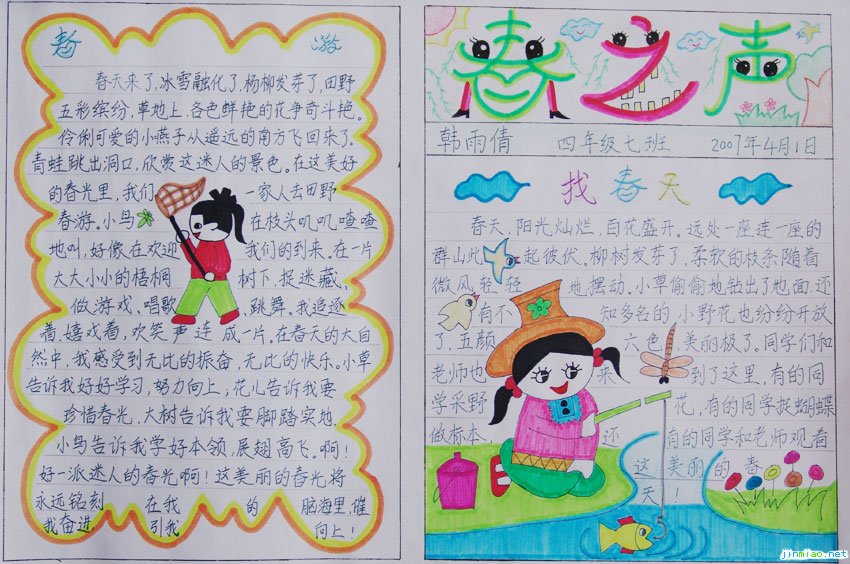 春 激
春天来了,冰雪融化了,杨柳发芽了,田野
五彩缤纷,草地上,各色鲜艳的花争奇斗艳。
伶俐可爱的小燕子从遥远的南方飞回来了。
青蛙跳出洞口,欣赏这迷人的景色。在这美好
的春光里,我们一家人去田野
春游。小鸟在枝头叽叽喳喳
地叫,好像在欢迎我们的到来。在一片
大大小小的梧桐树下,捉迷藏、
做游戏、唱歌、跳舞。我追逐
着,嬉戏着,欢笑声连成一片,在春天的大自
然中,我感受到无比的振奋,无比的快乐。小草
告诉我好好学习,努力向上;花儿告诉我要
珍惜春光,大树告诉我要脚踏实地,
小鸟告诉我学好本领,展翅高飞。啊!
好一派迷人的春光啊!这美丽的春光将
永远铭刻在我的脑海里,催
我奋进,引我向上!
春之声
韩雨倩 四年级七班 2007年4月1日
找春天
春天,阳光灿烂,百花盛开。远处一座连一座的
群山此起彼伏。柳树发芽了,柔软的枝条随着
微风轻轻地摆动。小草偷偷地钻出了地面,还
有不知多名的小野花也纷纷开放
了,五颜六色,美丽极了。同学们和
老师也来到了这里,有的同
学采野花,有的同学捉蝴蝶
做标本,还有的同学和老师观看
这美丽的春
天!
jinmiao.net